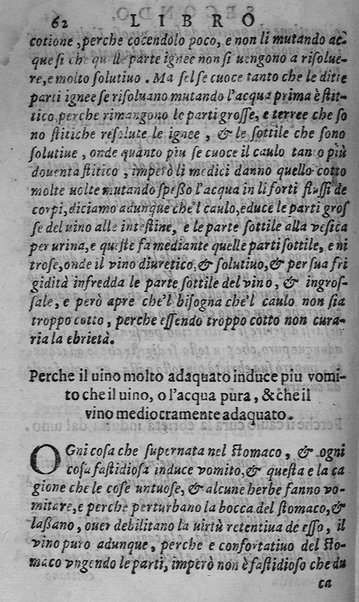 62 LIBRO
cotione, perche cocendolo poco, e non li mutando ac
que si che quelle parte ignee non si uengono a risolue-
re, e molto solutiuo. Ma sel se cuoce tanto che le ditte
parti ignee se risoluano mutando l'acqua prima è stit-
tico perche rimangono le parti grosse, e terree che so
no stitiche resolute le ignee, & le sottile che sono
solutiue, onde quanto piu se cuoce il caulo tanto più
douenta stitico, imperò li medici danno quello cotto
molte uolte mutando spesso l'acqua in li forti flussi de
corpi, diciamo adunque che'l caulo, educe le parti gros
se del uino alle intestine, e le parte sottile alla uesica
per urina, e queste fa mediante quelle parti sottile, e ni
trose, onde il uino diuretico, & solutiuo, & per sua fri
gidità infredda le parte sottile del uino, & ingros-
sale, e però apre che'l bisogna che'l caulo non sia
troppo cotto, perche essendo troppo cotto non cura-
ria la ebrietà.
Perche il uino molto adaquato induce piu vomi
to che il uino, o l'acqua pura, & che il
vino mediocramente adaquato.
OGni cosa che supernata nel stomaco, & ogni
cosa fastidiosa induce vomito, & questa e la ca
gione che le cose untuose, & alcune herbe fanno vo-
mitare, e perche perturbano la bocca del stomaco, &
lassano, ouer debilitano la uirtù retentiua de esso, il
vino puro adunque, perche e confortatiuo del Sto-
maco vngendo le parti, imperò non è fastidioso che du
ca